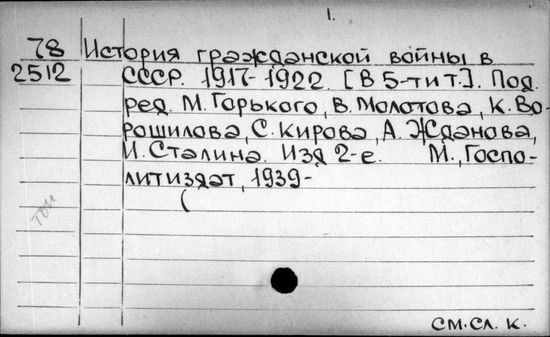 1.
78 История гражданской войны в
2512 СССР. 1917-1922. [В 5-ти т.]. Под
ред. М. Горького, В. Молотова, К. Во-
рошилова, С. Кирова, А. Жданова,
И. Сталина. Изд 2-е. М., Госпо-
литиздат, 1939-
(
см. сл. к.